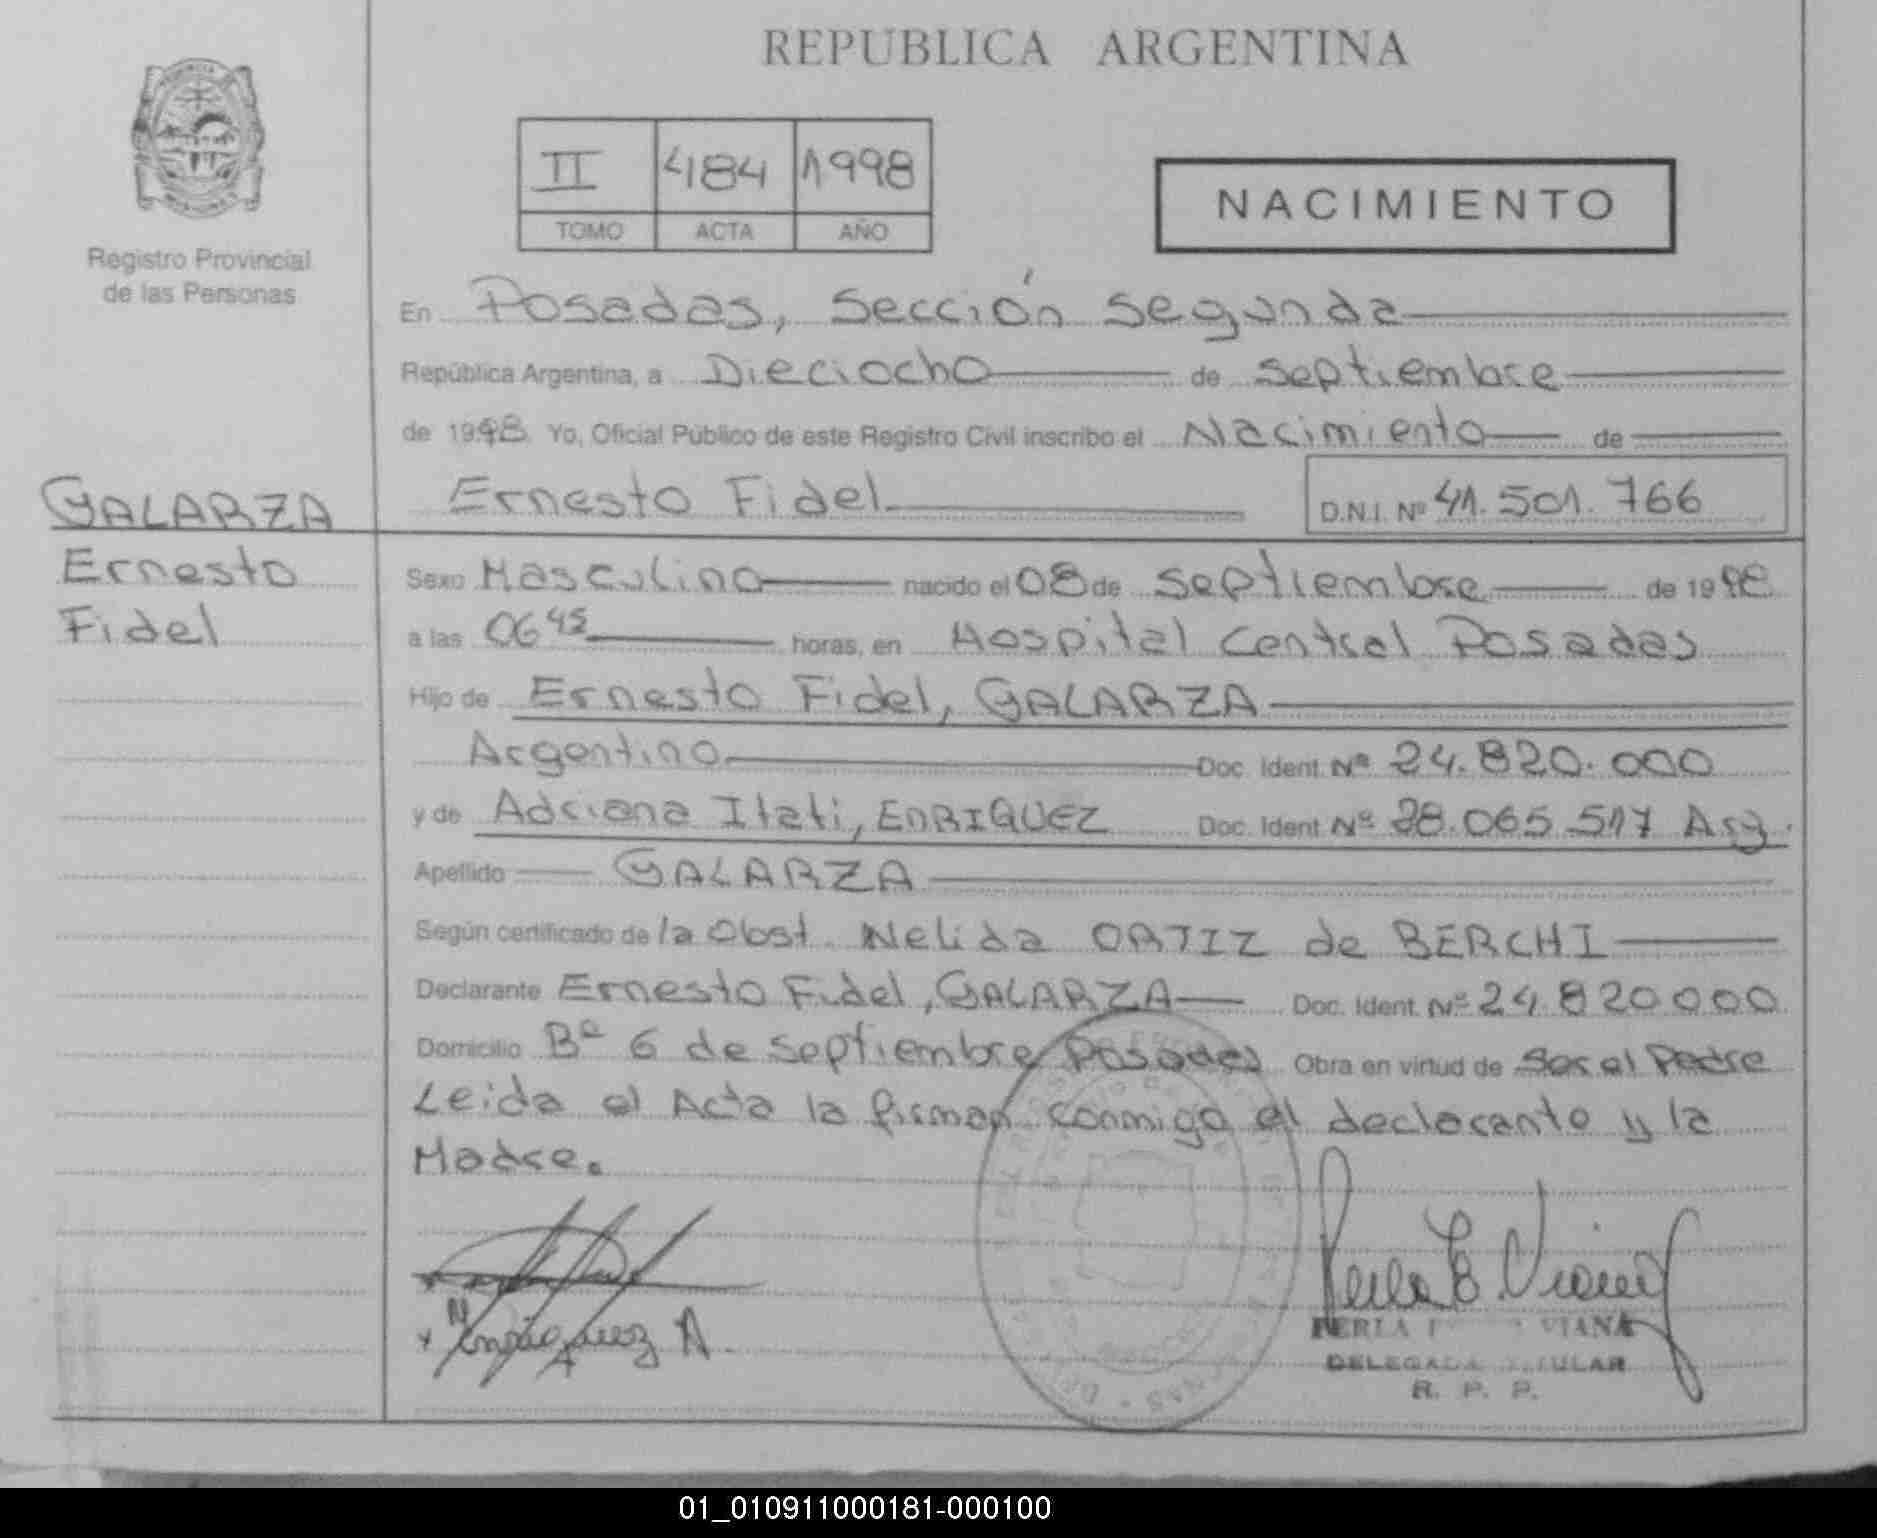 REPUBLICA ARGENTINA
II 484 1998
TOMO ACTA AÑO
NACIMIENTO
Registro Provincial
de las Personas
En Posadas, Sección Segunda
República Argentina, a Dieciocho de Septiembre
de 1998 Yo, Oficial Público de este Registro Civil inscribo el Nacimiento de
GALARZA
Ernesto
Fidel
Ernesto Fidel D.N.I. Nº 41.501.766
Sexo Masculino nacido el 08 de Septiembre de 1998
a las 06 45 horas, en Hospital Central Posadas
Hijo de Ernesto Fidel, GALARZA
Argentino Doc. Ident. Nº 24.820.000
y de Adriana Itati, ENRIQUEZ Doc. Ident. Nº 28.065.517 Arg.
Apellido GALARZA
Según certificado de la Obst. Nelida ORTIZ de BERCHI
Declarante Ernesto Fidel, GALARZA Doc. Ident. Nº 24.820000
Domicilio Bº 6 de Septiembre Posadas Obra en virtud de Ser el Padre
Leida el Acta la firman conmigo el declarante y la
Madre.
Enriquez A
PERLA VIANA
DELEGADA TITULAR
R. P. P.
01_010911000181-000100